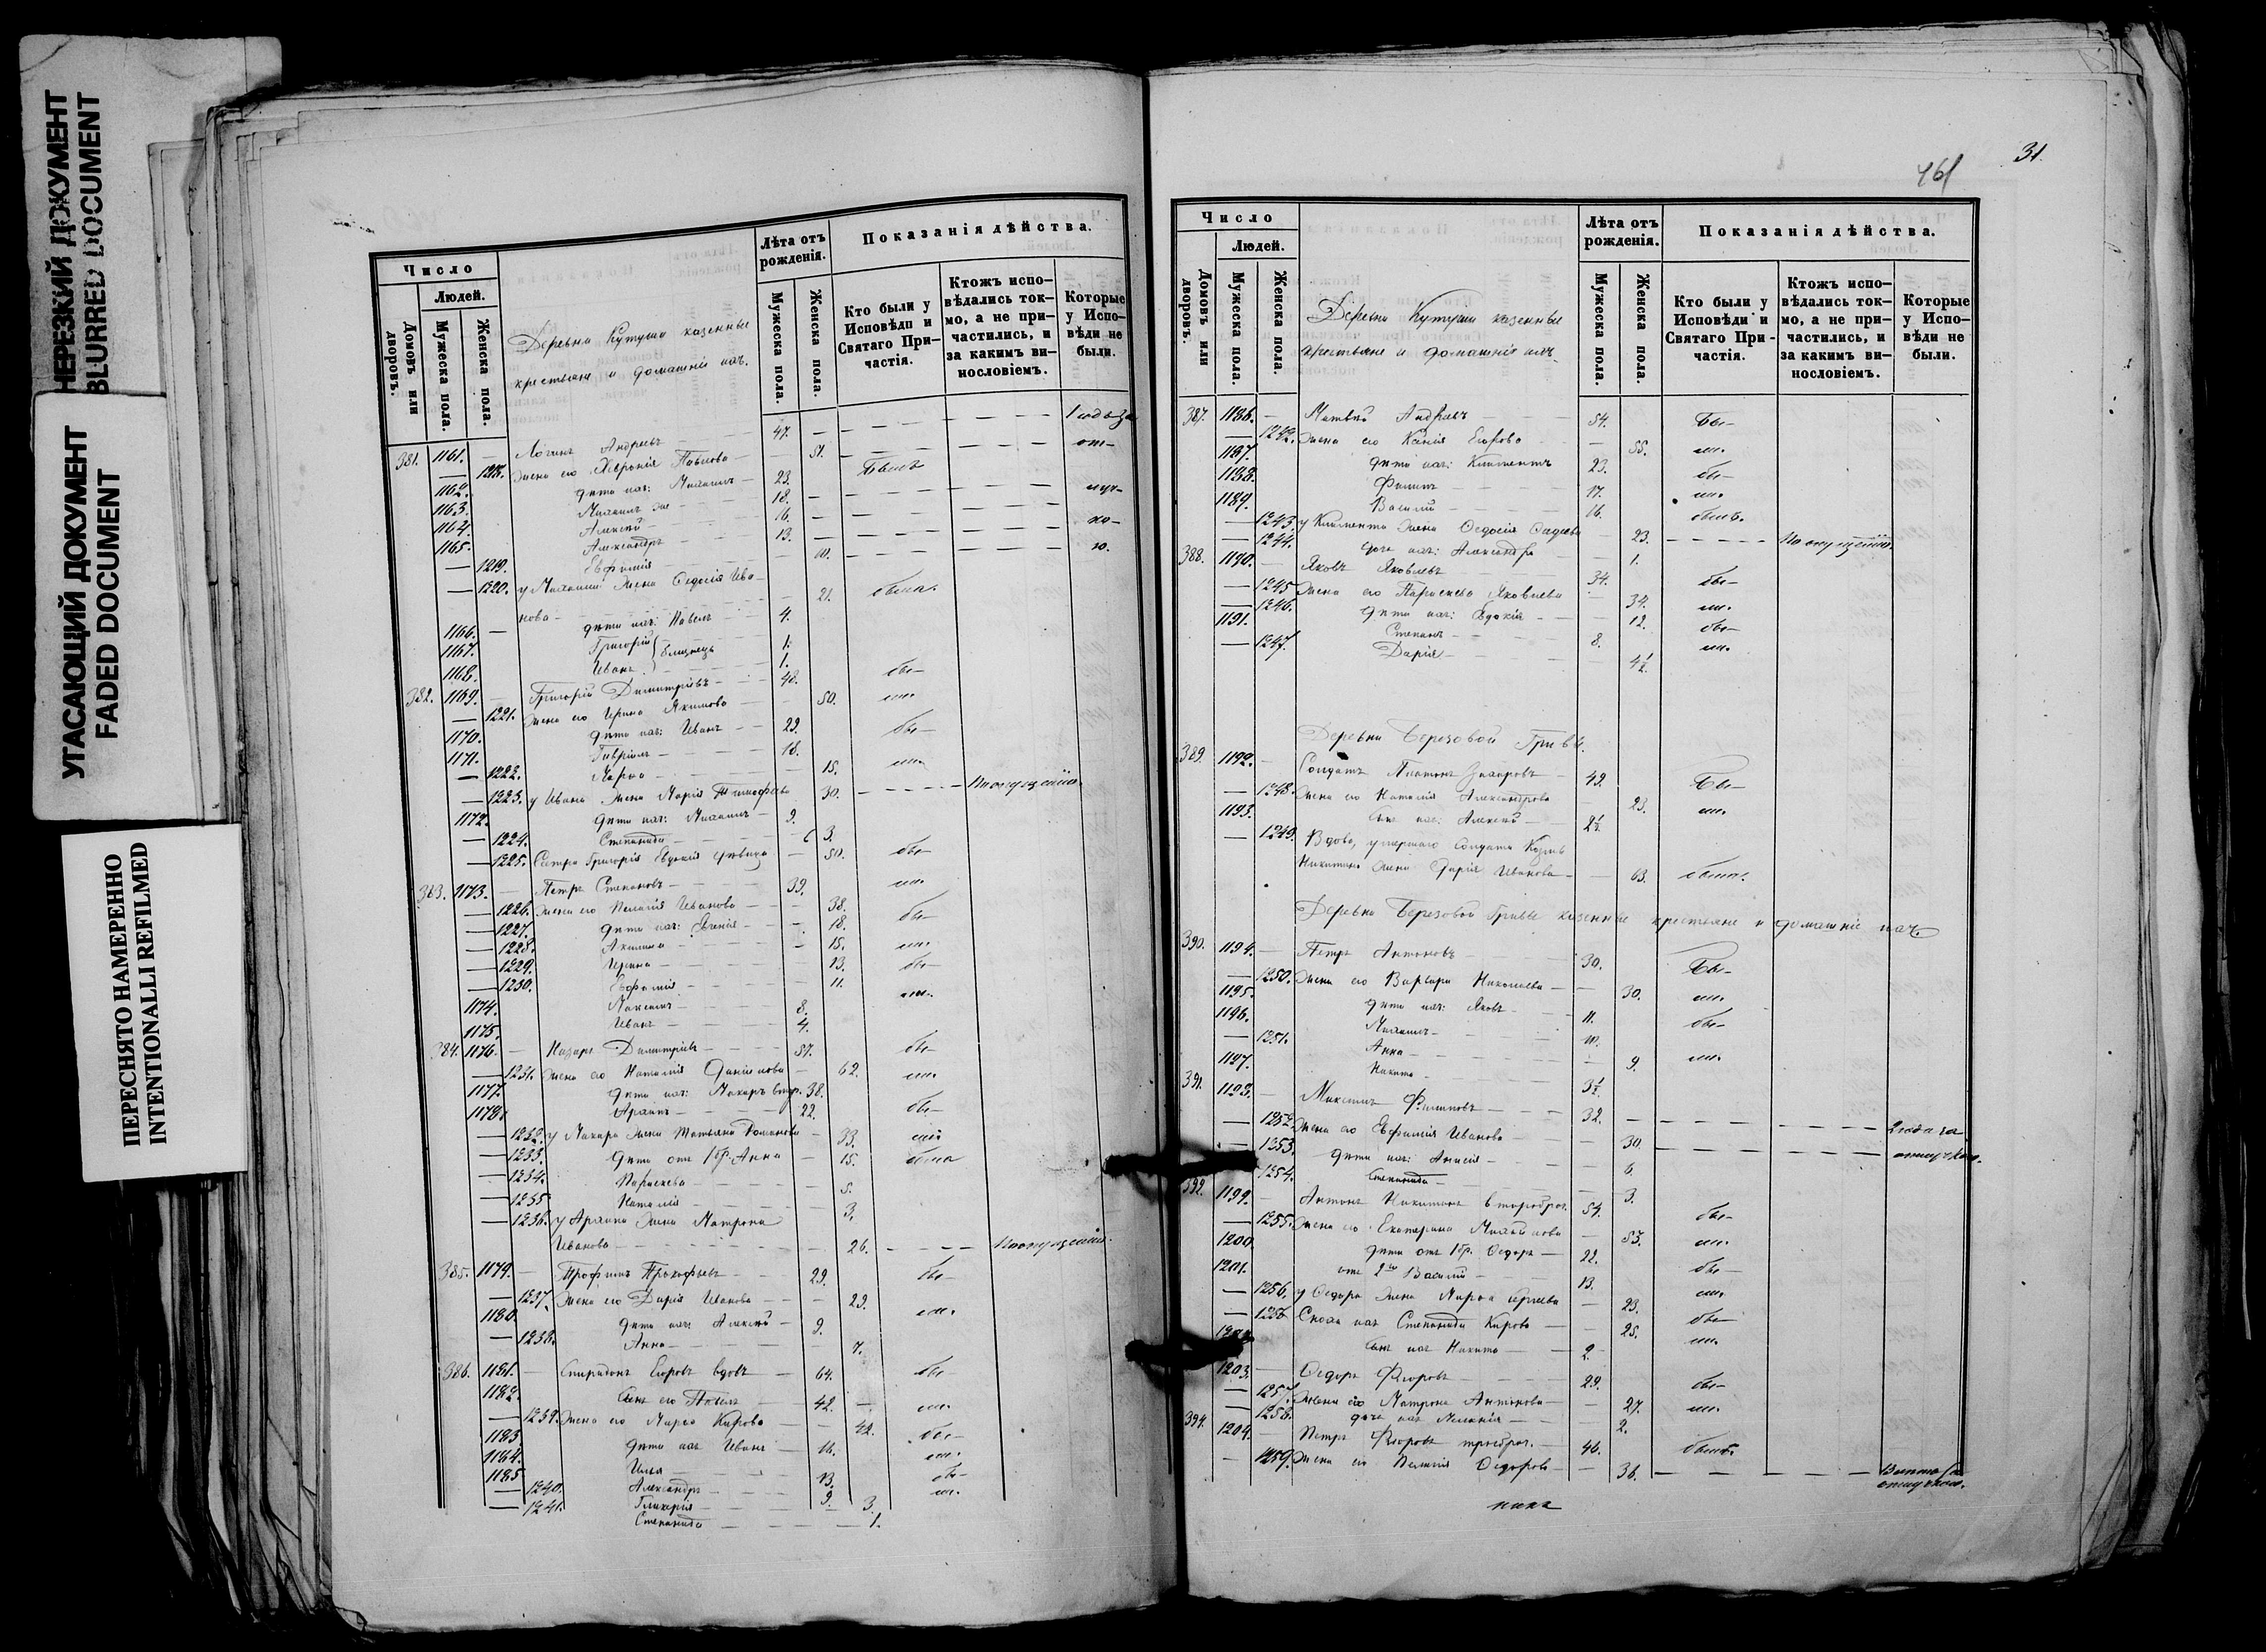 НЕРЕЗКИЙ ДОКУМЕНТ
BLURRED DOCUMENT
УГАСАЮЩИЙ ДОКУМЕНТ
FADED DOCUMENT
ПЕРЕСНЯТО НАМЕРЕННО
INTENTIONALLI REFILMED
Число
Людей.
Домовъ или дворовъ.
Мужеска пола.
Женска пола.
Деревни Кутуши казенные
крестьяне и домашніе ихъ.
Лѣта отъ рожденія.
Мужеска пола.
Женска пола.
Показанія дѣйства.
Кто были у Исповѣди и Святаго При-частія.
Ктожъ испо-вѣдались ток-мо, а не при-частились, и за какимъ ви-нословіемъ.
Которые у Испо-вѣди не были.
381. 1161. Логинъ Андреевъ 47.
1218. Жена его Хевронія Павлова 51.
1162. дѣти ихъ: Михаилъ 23.
1163. Михаилъ 18.
1164. Алексѣй 16.
1165. Александръ 13.
1219. Евфимія 10.
1220. у Михаила жена Ѳедосія Ива-
нова 21. была.
1166. дѣти ихъ: Павелъ 4.
1167. Григорій близнецъ 1.
1168. Иванъ 1.
382. 1169. Григорій Димитріевъ 48. бы-
1221. Жена его Ирина Якимова 50. ли.
1170. дѣти ихъ: Иванъ 29. бы-
1171. Гавріилъ 18.
1222. Марѳа 15. ли.
1223. у Ивана жена Марія Тимофеева 30. По опущенію.
1172. дѣти ихъ: Михаилъ 9.
1224. Степанида 3.
1225. Сестра Григорія Евдокія дѣвица 50. бы-
383. 1173. Петръ Степановъ 39. ли.
1226. Жена его Пелагія Иванова 38.
1227. дѣти ихъ: Евгенія 18. бы-
1228. Акилина 15. ли.
1229. Ирина 13. бы-
1230. Евфимія 11. ли.
1174. Максимъ 8.
1175. Иванъ 4.
384. 1176. Назаръ Димитріевъ 57. бы-
1231. Жена его Наталія Даніилова 62. ли.
1177. дѣти ихъ: Макаръ втбр. 38.
1178. Архипъ 22. бы-
1232. у Макара жена Татьяна Романова 33. ли
1233. дѣти отъ 1 бр. Анна 15. была
1234. Параскева 5.
1235. Наталія 3.
1236. у Архипа жена Матрона
Иванова 26. По опущенію.
385. 1179. Трофимъ Прокофьевъ 29. бы-
1237. Жена его Дарія Иванова 29. ли.
1180. дѣти ихъ: Алексѣй 9.
1238. Анна 7.
386. 1181. Спиридонъ Егоровъ вдовъ 64. бы-
1182. Сынъ его Павелъ 42. ли.
1239. Жена его Марѳа Карпова 42. бы-
1183. дѣти ихъ Иванъ 16. ли.
1184. Илья 13. бы-
1185. Александръ 9. ли.
1240. Гликерія 3.
1241. Степанида 1.
461 31.
Число
Людей.
Домовъ или дворовъ.
Мужеска пола.
Женска пола.
Деревни Кутуши казенные
крестьяне и домашніе ихъ
Лѣта отъ рожденія.
Мужеска пола.
Женска пола.
Показанія дѣйства.
Кто были у Исповѣди и Святаго При-частія.
Ктожъ испо-вѣдались ток-мо, а не при-частились, и за какимъ ви-нословіемъ.
Которые у Испо-вѣди не были.
387. 1186. Матвѣй Андреевъ 54. Бы-
1242. Жена его Ксенія Егорова 55. ли.
1187. дѣти ихъ: Климентъ 23. бы-
1188. Филипъ 17. ли.
1189. Василій 16. былъ.
1243. у Климента жена Ѳедосія 23. По опущенію.
1244. дочь ихъ: Александра 1.
388. 1190. Яковъ Яковлевъ 34. бы-
1245 Жена его Параскева Яковлева 34. ли.
1246. дѣти ихъ: Евдокія 12. бы-
1191. Степанъ 8. ли.
1247. Дарія 4½.
Деревни Березовой Гривы.
389. 1192. Солдатъ Платонъ Захаровъ 49. Бы-
1248. Жена его Наталія Александрова 23. ли.
1193. Сынъ ихъ: Алексѣй 2½.
1249. Вдова, умершаго солдата Козмы
Никитина жена Дарія Иванова 63. была.
Деревни Березовой Гривы казенные крестьяне и домашніе ихъ
390. 1194. Петръ Антоновъ 30. Бы-
1250. Жена его Варвара Николаева 30. ли.
1195. дѣти ихъ: Яковъ 11. бы-
1196. Михаилъ 10.
1251. Анна 9. ли.
1197. Никита 3½.
391. 1198. Максимъ Филиповъ 32. 2 года за
1252. Жена его Евфимія Иванова 30. отлучкою.
1253. дѣти ихъ: Анисія 6.
1254. Степанида 3.
392. 1199. Антонъ Никитинъ второбрач. 54. бы-
1255. Жена его Екатерина Михайлова 53. ли.
1200. дѣти отъ 1 бр. Ѳедоръ 22. бы-
1201. отъ 2го Василій 13. ли.
1256. у Ѳедора жена Марѳа 23. бы-
Сноха ихъ Степанида Карпова 25. ли.
Сынъ ихъ Никита 2.
1203. Ѳедоръ Флоровъ 29. бы-
1257. Жена его Матрона Антонова 27. ли.
1258. дочь ихъ Меланія 2.
394. 1204. Петръ Флоровъ троебрач. 46. былъ.
1259. Жена его Пелагія Ѳедорова 36.
отлучкою.